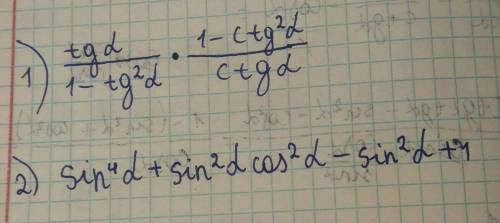 1) tgα / (1 - tg²α) · (1 - ctg²α) / ctgα
2) sin⁴α + sin²α cos²α - sin²α + 1